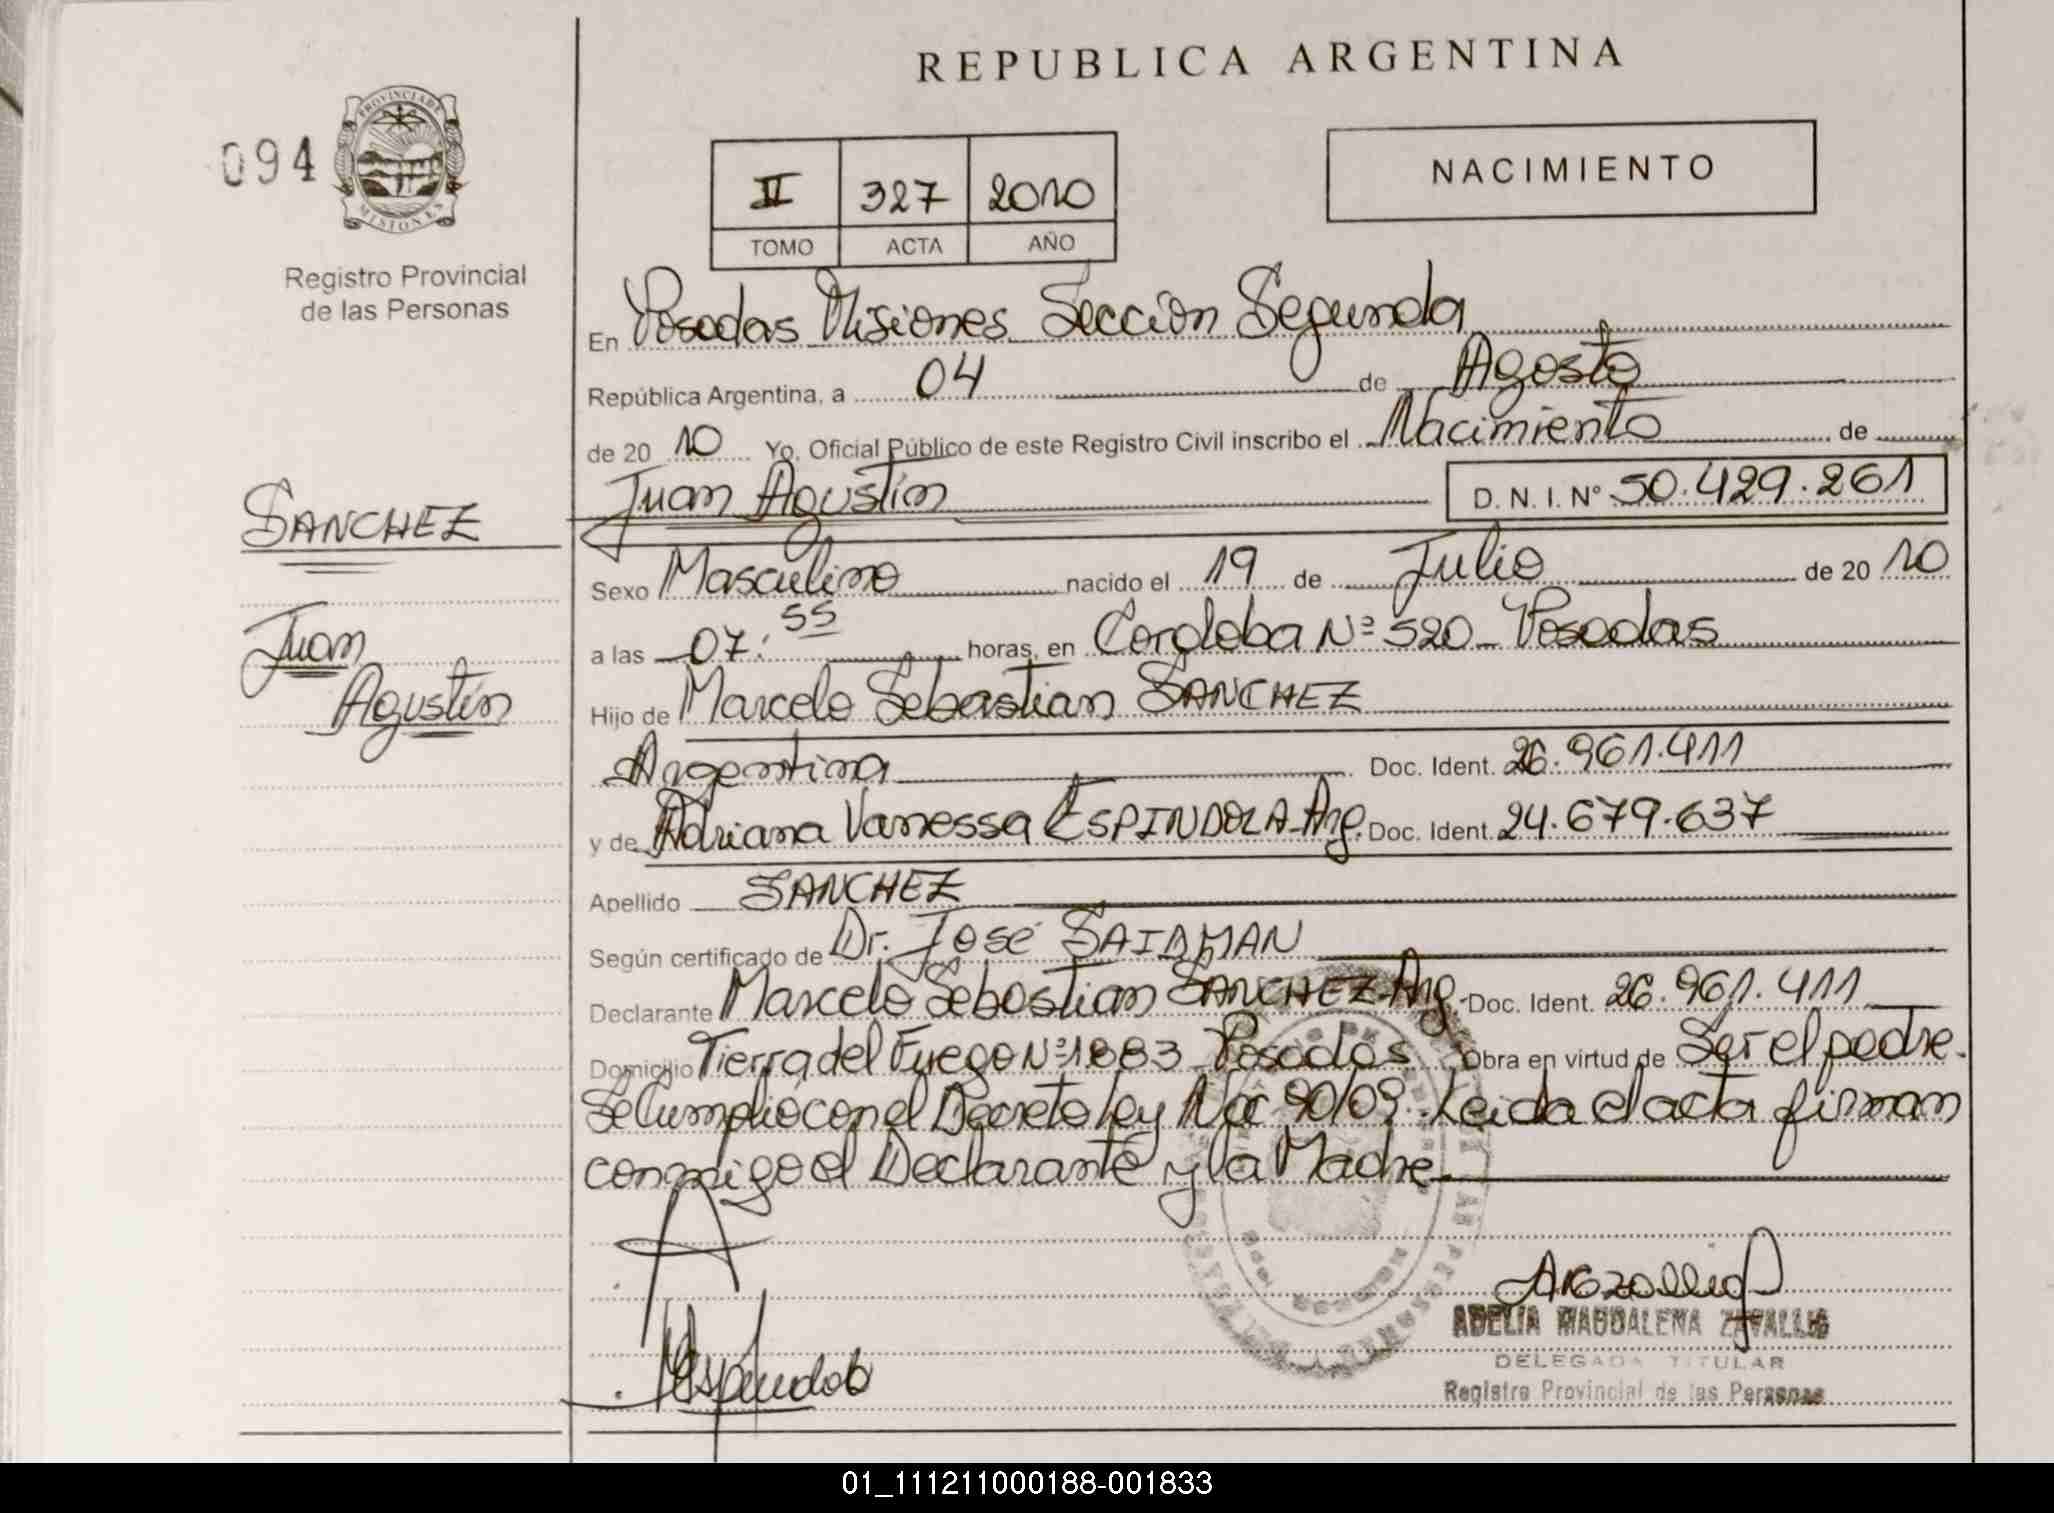 REPUBLICA ARGENTINA
094
PROVINCIA DE
MISIONES
Registro Provincial
de las Personas
II 327 2010
TOMO ACTA AÑO
NACIMIENTO
En Posadas Misiones Sección Segunda
República Argentina, a 04 de Agosto
de 20 10 Yo, Oficial Público de este Registro Civil inscribo el Nacimiento de
SANCHEZ
Juan Agustín
D. N. I. Nº 50.429.261
Sexo Masculino nacido el 19 de Julio de 20 10
Juan
Agustín
a las 07:55 horas, en Cordoba Nº 520 Posadas
Hijo de Marcelo Sebastian SANCHEZ
Argentina Doc. Ident. 26.961.411
y de Adriana Vanessa ESPINDOLA Arg. Doc. Ident. 24.679.637
Apellido SANCHEZ
Según certificado de Dr. José SAIDMAN
Declarante Marcelo Sebastian SANCHEZ Arg. Doc. Ident. 26.961.411
Domicilio Tierra del Fuego Nº 1883 Posadas Obra en virtud de Ser el padre.
Se Cumplió con el Decreto Ley Nac 90/09. Leida el acta firman
conmigo el Declarante y la Madre
ADELIA MAGDALENA
DELEGADA TITULAR
Registro Provincial de las Personas
01_111211000188-001833